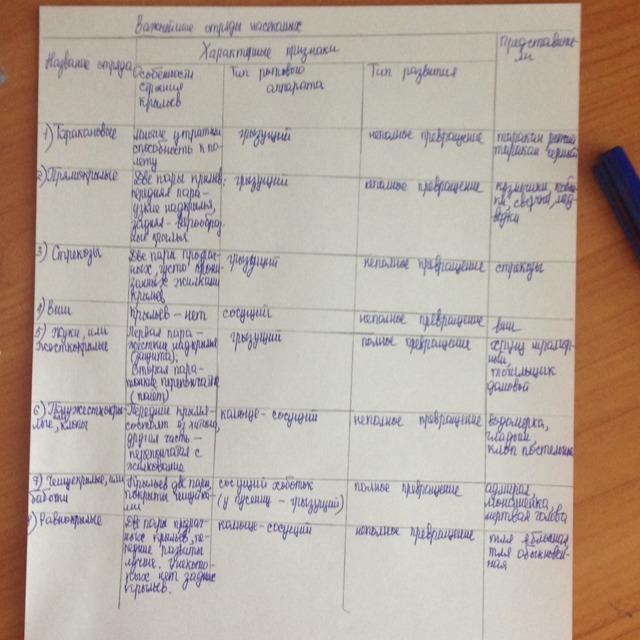 Важнейшие отряды насекомых
Название отряда
Характерные признаки
Представители
Особенности строения крыльев
Тип ротового аппарата
Тип развития
1) Таракановые
многие утратили
способность к по-
лету
грызущий
неполное превращение
таракан рыжий
таракан черный
2) Прямокрылые
Две пары крыльев:
передняя пара -
узкие надкрылья,
задняя - веерообраз-
ные крылья
грызущий
неполное превращение
кузнечики, кобыл-
ка, сверчки, мед-
ведки
3) Стрекозы
Две пары прозрач-
ных, густо прони-
занных жилками
крыльев
грызущий
неполное превращение
стрекозы
4) Вши
Крыльев - нет
сосущий
неполное превращение
вши
5) Жуки, или
жесткокрылые
Первая пара -
жесткие надкрылья
(защита);
вторая пара -
тонкие перепончатые
(полёт)
грызущий
полное превращение
хрущ мрамор-
ный,
точильщик
домовой
6) Полужесткокры-
лые, клопы
Передние крылья
состоят из хитина,
другая часть -
перепончатая с
жилкованием
колюще-сосущий
неполное превращение
Водомерка,
гладыш
клоп постельный
7) Чешуекрылые, или
бабочки
Крыльев две пары,
покрыты чешуйка-
ми
сосущий хоботок
(у гусениц - грызущий)
полное превращение
адмирал,
капустница,
мертвая голова
8) Равнокрылые
Две пары прозрач-
ных крыльев, пе-
редние развиты
лучше. У некото-
рых нет задних
крыльев.
колюще-сосущий
неполное превращение
тля яблонная,
тля обыкновен-
ная